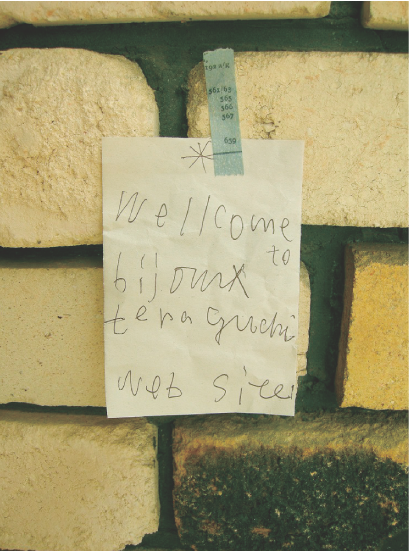 561/63
565
566
567
659
*
Wellcome
to
bijoux
tera guchi
web site